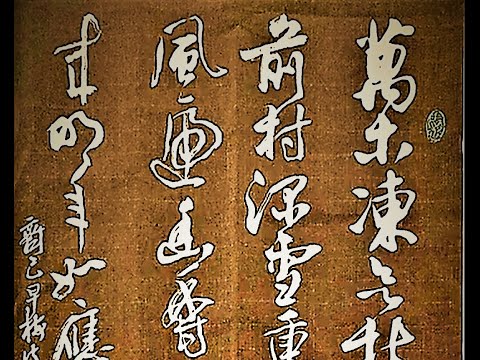 萬木凍欲折
前村深雪
風遞幽香
來明年如應
齊己早梅